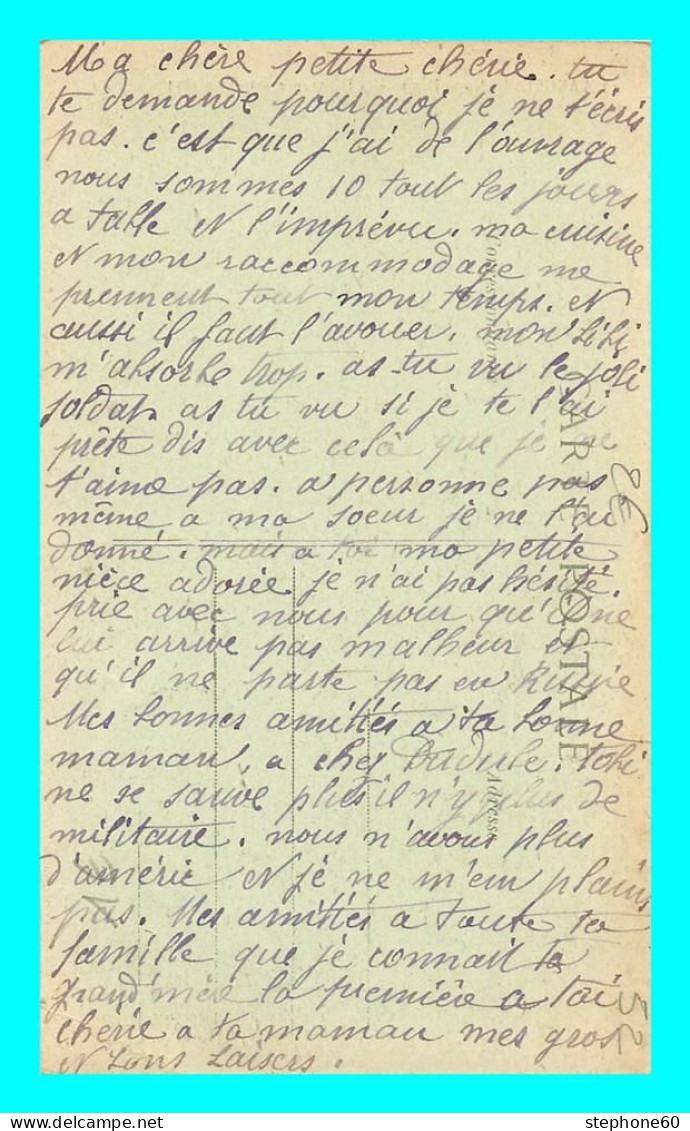 Ma chère petite chérie. tu
te demande pourquoi je ne t'écris
pas. c'est que j'ai de l'ouvrage
nous sommes 10 tout les jours
a table et l'imprévu. ma cuisine
et mon raccommodage me
prennent tout mon temps. et
aussi il faut l'avouer. mon
m'absorbe trop. as-tu vu le joli
soldat. as tu vu si je te l'ai
prête dis avec celà que je ne
t'aime pas. a personne pas
même a ma soeur je ne l'ai
donné. mais a toi ma petite
nièce adorée je n'ai pas hésité.
prie avec nous pour qu'il ne
lui arrive pas malheur et
qu'il ne parte pas en Russie
Mes bonnes amitiés a ta bonne
maman, a chez . tobi
ne se sauve plus il n'y a plus de
militaire. nous n'avons plus
d'améric et je ne m'en plains
pas. Mes amitiés a toute ta
famille que je connait ta
grand'mère la première a toi
cherie a ta maman mes gros
et bons baisers.
CARTE POSTALE
Correspondance
Adresse
stephone60